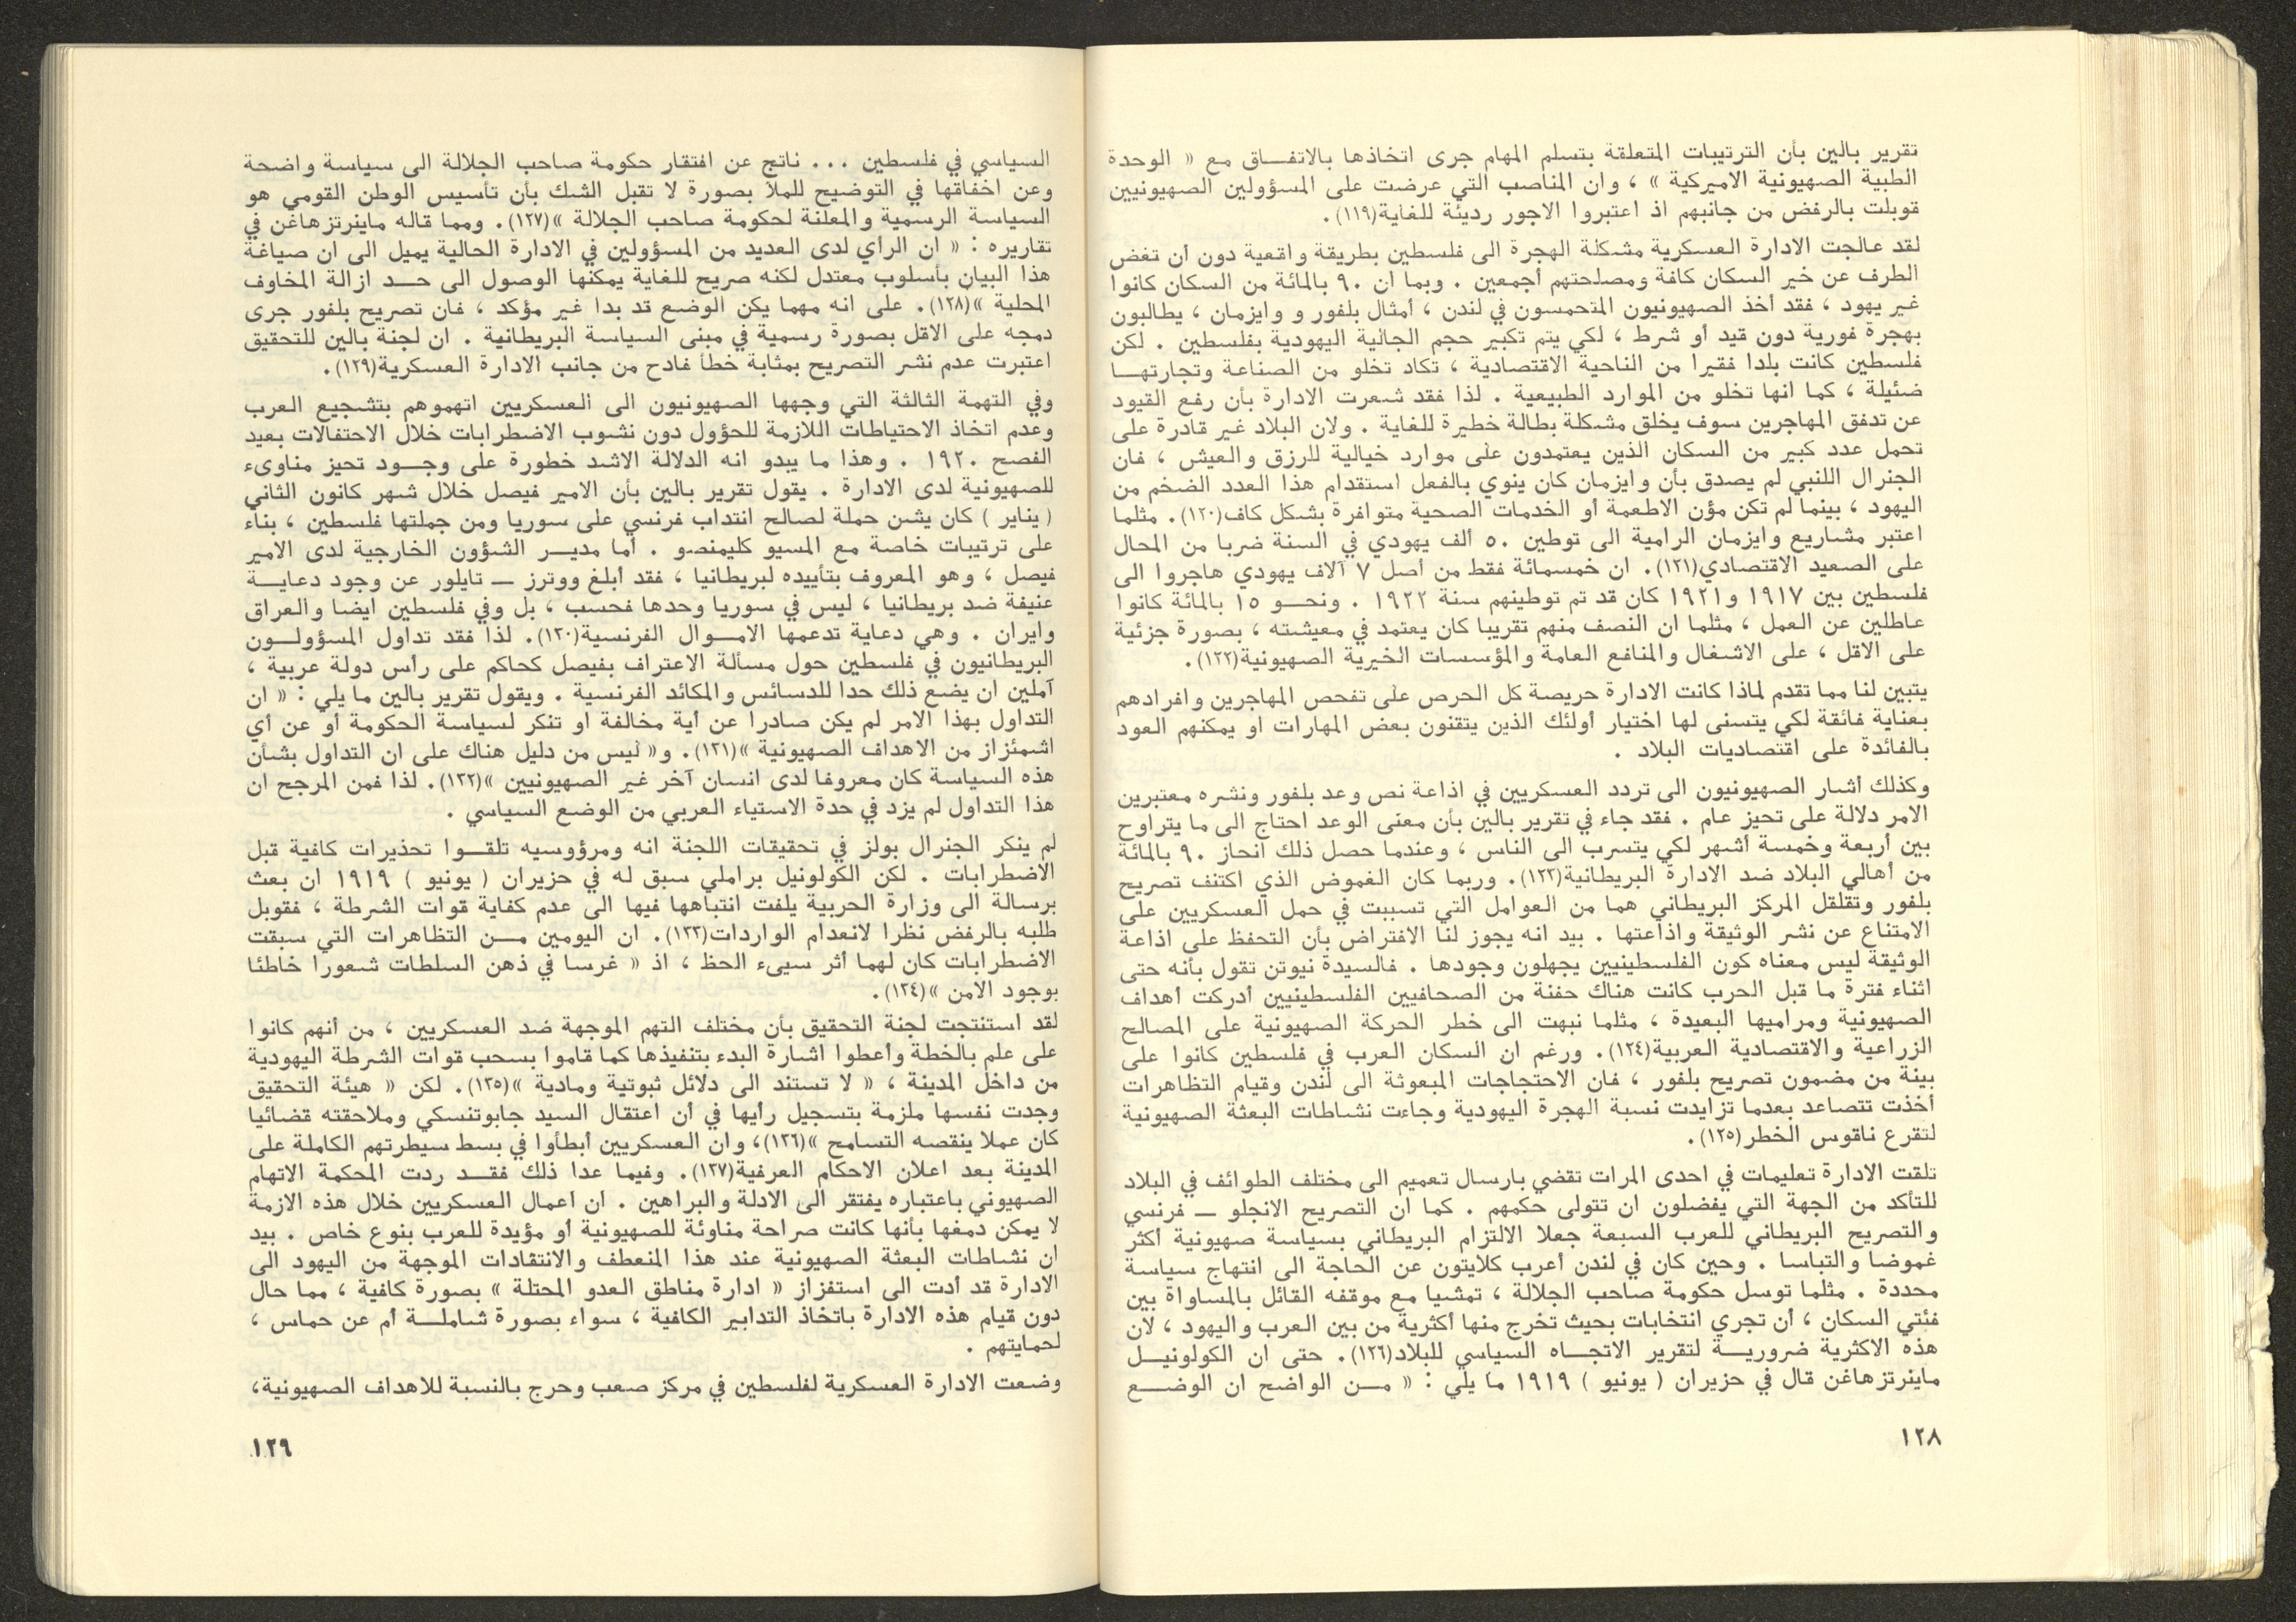 تقرير بالين بأن الترتيبات المتعلقة بتسلم المهام جرى اتخاذها بالاتفـاق مع « الوحدة
الطبية الصهيونية الاميركية » ، وان المناصب التي عرضت على المسؤولين الصهيونيين
قوبلت بالرفض من جانبهم اذ اعتبروا الاجور رديئة للغاية(١١٩).
لقد عالجت الادارة العسكرية مشكلة الهجرة الى فلسطين بطريقة واقعية دون أن تغض
الطرف عن خير السكان كافة ومصلحتهم أجمعين . وبما ان ٩٠ بالمائة من السكان كانوا
غير يهود ، فقد أخذ الصهيونيون المتحمسون في لندن ، أمثال بلفور و وايزمان ، يطالبون
بهجرة فورية دون قيد أو شرط ، لكي يتم تكبير حجم الجالية اليهودية بفلسطين . لكن
فلسطين كانت بلدا فقيرا من الناحية الاقتصادية ، تكاد تخلو من الصناعة وتجارتهـا
ضئيلة ، كما انها تخلو من الموارد الطبيعية . لذا فقد شعرت الادارة بأن رفع القيود
عن تدفق المهاجرين سوف يخلق مشكلة بطالة خطيرة للغاية . ولان البلاد غير قادرة على
تحمل عدد كبير من السكان الذين يعتمدون على موارد خيالية للرزق والعيش ، فان
الجنرال اللنبي لم يصدق بأن وايزمان كان ينوي بالفعل استقدام هذا العدد الضخم من
اليهود ، بينما لم تكن مؤن الاطعمة أو الخدمات الصحية متوافرة بشكل كاف(١٢٠). مثلما
اعتبر مشاريع وايزمان الرامية الى توطين ٥٠ ألف يهودي في السنة ضربا من المحال
على الصعيد الاقتصادي(١٢١). ان خمسمائة فقط من أصل ٧ آلاف يهودي هاجروا الى
فلسطين بين ١٩١٧ و١٩٢١ كان قد تم توطينهم سنة ١٩٢٢ . ونحـو ١٥ بالمائة كانوا
عاطلين عن العمل ، مثلما ان النصف منهم تقريبا كان يعتمد في معيشته ، بصورة جزئية
على الاقل ، على الاشغال والمنافع العامة والمؤسسات الخيرية الصهيونية(١٢٢).
يتبين لنا مما تقدم لماذا كانت الادارة حريصة كل الحرص على تفحص المهاجرين وافرادهم
بعناية فائقة لكي يتسنى لها اختيار أولئك الذين يتقنون بعض المهارات او يمكنهم العود
بالفائدة على اقتصاديات البلاد .
وكذلك أشار الصهيونيون الى تردد العسكريين في اذاعة نص وعد بلفور ونشره معتبرين
الامر دلالة على تحيز عام . فقد جاء في تقرير بالين بأن معنى الوعد احتاج الى ما يتراوح
بين أربعة وخمسة أشهر لكي يتسرب الى الناس ، وعندما حصل ذلك انحاز ٩٠ بالمائة
من أهالي البلاد ضد الادارة البريطانية(١٢٣). وربما كان الغموض الذي اكتنف تصريح
بلفور وتقلقل المركز البريطاني هما من العوامل التي تسببت في حمل العسكريين على
الامتناع عن نشر الوثيقة واذاعتها . بيد انه يجوز لنا الافتراض بأن التحفظ على اذاعة
الوثيقة ليس معناه كون الفلسطينيين يجهلون وجودها . فالسيدة نيوتن تقول بأنه حتى
اثناء فترة ما قبل الحرب كانت هناك حفنة من الصحافيين الفلسطينيين أدركت أهداف
الصهيونية ومراميها البعيدة ، مثلما نبهت الى خطر الحركة الصهيونية على المصالح
الزراعية والاقتصادية العربية(١٢٤). ورغم ان السكان العرب في فلسطين كانوا على
بينة من مضمون تصريح بلفور ، فان الاحتجاجات المبعوثة الى لندن وقيام التظاهرات
أخذت تتصاعد بعدما تزايدت نسبة الهجرة اليهودية وجاءت نشاطات البعثة الصهيونية
لتقرع ناقوس الخطر(١٢٥).
تلقت الادارة تعليمات في احدى المرات تقضي بارسال تعميم الى مختلف الطوائف في البلاد
للتأكد من الجهة التي يفضلون ان تتولى حكمهم . كما ان التصريح الانجلو ـ فرنسي
والتصريح البريطاني للعرب السبعة جعلا الالتزام البريطاني بسياسة صهيونية أكثر
غموضا والتباسا . وحين كان في لندن أعرب كلايتون عن الحاجة الى انتهاج سياسة
محددة . مثلما توسل حكومة صاحب الجلالة ، تمشيا مع موقفه القائل بالمساواة بين
فئتي السكان ، أن تجري انتخابات بحيث تخرج منها أكثرية من بين العرب واليهود ، لان
هذه الاكثرية ضروريـة لتقرير الاتجـاه السياسي للبلاد(١٢٦). حتى ان الكولونيـل
ماينرتزهاغن قال في حزيران ( يونيو ) ١٩١٩ ما يلي : « مـن الواضح ان الوضـع
١٢٨
السياسي في فلسطين ... ناتج عن افتقار حكومة صاحب الجلالة الى سياسة واضحة
وعن اخفاقها في التوضيح للملأ بصورة لا تقبل الشك بأن تأسيس الوطن القومي هو
السياسة الرسمية والمعلنة لحكومة صاحب الجلالة »(١٢٧). ومما قاله ماينرتزهاغن في
تقاريره : « ان الرأي لدى العديد من المسؤولين في الادارة الحالية يميل الى ان صياغة
هذا البيان بأسلوب معتدل لكنه صريح للغاية يمكنها الوصول الى حـد ازالة المخاوف
المحلية »(١٢٨). على انه مهما يكن الوضع قد بدا غير مؤكد ، فان تصريح بلفور جرى
دمجه على الاقل بصورة رسمية في مبنى السياسة البريطانية . ان لجنة بالين للتحقيق
اعتبرت عدم نشر التصريح بمثابة خطأ فادح من جانب الادارة العسكرية(١٢٩).
وفي التهمة الثالثة التي وجهها الصهيونيون الى العسكريين اتهموهم بتشجيع العرب
وعدم اتخاذ الاحتياطات اللازمة للحؤول دون نشوب الاضطرابات خلال الاحتفالات بعيد
الفصح ١٩٢٠ . وهذا ما يبدو انه الدلالة الاشد خطورة على وجـود تحيز مناوىء
للصهيونية لدى الادارة . يقول تقرير بالين بأن الامير فيصل خلال شهر كانون الثاني
( يناير ) كان يشن حملة لصالح انتداب فرنسي على سوريا ومن جملتها فلسطين ، بناء
على ترتيبات خاصة مع المسيو كليمنصو . أما مديـر الشؤون الخارجية لدى الامير
فيصل ، وهو المعروف بتأييده لبريطانيا ، فقد أبلغ ووترز ـ تايلور عن وجود دعايـة
عنيفة ضد بريطانيا ، ليس في سوريا وحدها فحسب ، بل وفي فلسطين ايضا والعراق
وايران . وهي دعاية تدعمها الامـوال الفرنسية(١٣٠). لذا فقد تداول المسؤولـون
البريطانيون في فلسطين حول مسألة الاعتراف بفيصل كحاكم على رأس دولة عربية ،
آملين ان يضع ذلك حدا للدسائس والمكائد الفرنسية . ويقول تقرير بالين ما يلي : « ان
التداول بهذا الامر لم يكن صادرا عن أية مخالفة او تنكر لسياسة الحكومة أو عن أي
اشمئزاز من الاهداف الصهيونية »(١٣١). و« ليس من دليل هناك على ان التداول بشأن
هذه السياسة كان معروفا لدى انسان آخر غير الصهيونيين »(١٣٢). لذا فمن المرجح ان
هذا التداول لم يزد في حدة الاستياء العربي من الوضع السياسي .
لم ينكر الجنرال بولز في تحقيقات اللجنة انه ومرؤوسيه تلقـوا تحذيرات كافية قبل
الاضطرابات . لكن الكولونيل براملي سبق له في حزيران ( يونيو ) ١٩١٩ ان بعث
برسالة الى وزارة الحربية يلفت انتباهها فيها الى عدم كفاية قوات الشرطة ، فقوبل
طلبه بالرفض نظرا لانعدام الواردات(١٣٣). ان اليومين مـن التظاهرات التي سبقت
الاضطرابات كان لهما أثر سيىء الحظ ، اذ « غرسا في ذهن السلطات شعورا خاطئا
بوجود الامن »(١٣٤).
لقد استنتجت لجنة التحقيق بأن مختلف التهم الموجهة ضد العسكريين ، من أنهم كانوا
على علم بالخطة وأعطوا اشارة البدء بتنفيذها كما قاموا بسحب قوات الشرطة اليهودية
من داخل المدينة ، « لا تستند الى دلائل ثبوتية ومادية »(١٣٥). لكن « هيئة التحقيق
وجدت نفسها ملزمة بتسجيل رأيها في أن اعتقال السيد جابوتنسكي وملاحقته قضائيا
كان عملا ينقصه التسامح »(١٣٦)، وان العسكريين أبطأوا في بسط سيطرتهم الكاملة على
المدينة بعد اعلان الاحكام العرفية(١٣٧). وفيما عدا ذلك فقـد ردت المحكمة الاتهام
الصهيوني باعتباره يفتقر الى الادلة والبراهين . ان اعمال العسكريين خلال هذه الازمة
لا يمكن دمغها بأنها كانت صراحة مناوئة للصهيونية أو مؤيدة للعرب بنوع خاص . بيد
ان نشاطات البعثة الصهيونية عند هذا المنعطف والانتقادات الموجهة من اليهود الى
الادارة قد أدت الى استفزاز « ادارة مناطق العدو المحتلة » بصورة كافية ، مما حال
دون قيام هذه الادارة باتخاذ التدابير الكافية ، سواء بصورة شاملـة أم عن حماس ،
لحمايتهم .
وضعت الادارة العسكرية لفلسطين في مركز صعب وحرج بالنسبة للاهداف الصهيونية،
١٢٩